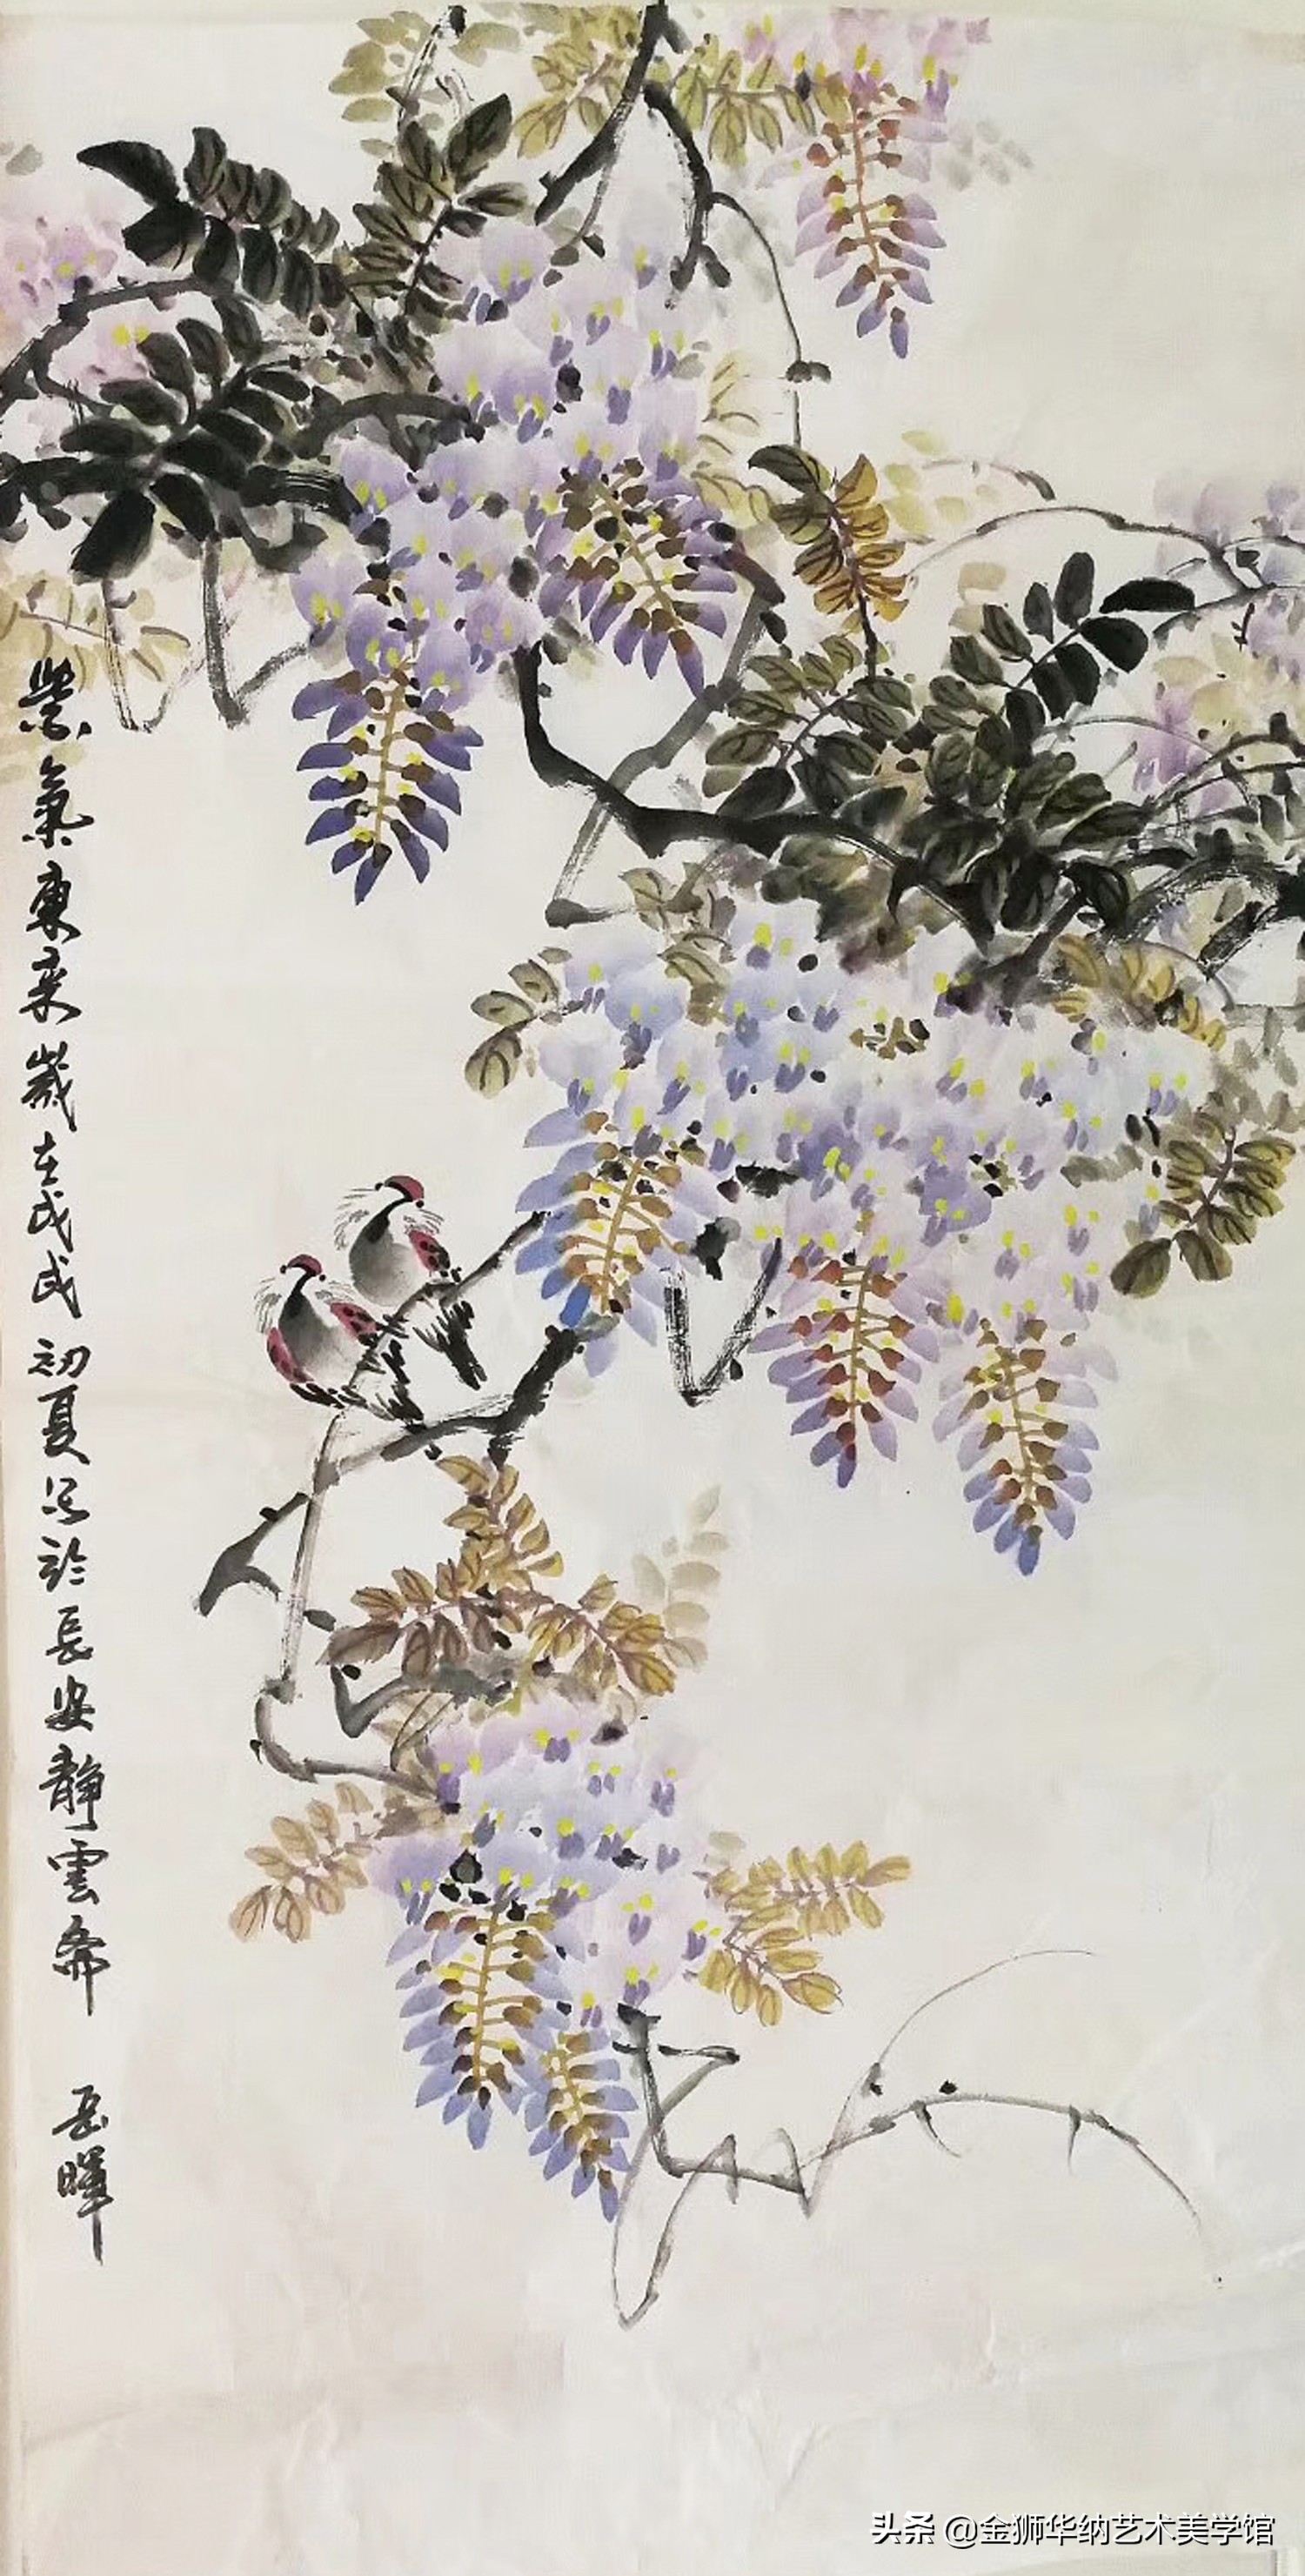 紫氣東来歲在戊戌初夏写於長安靜雲斋 岳暉
头条 @金狮华纳艺术美学馆